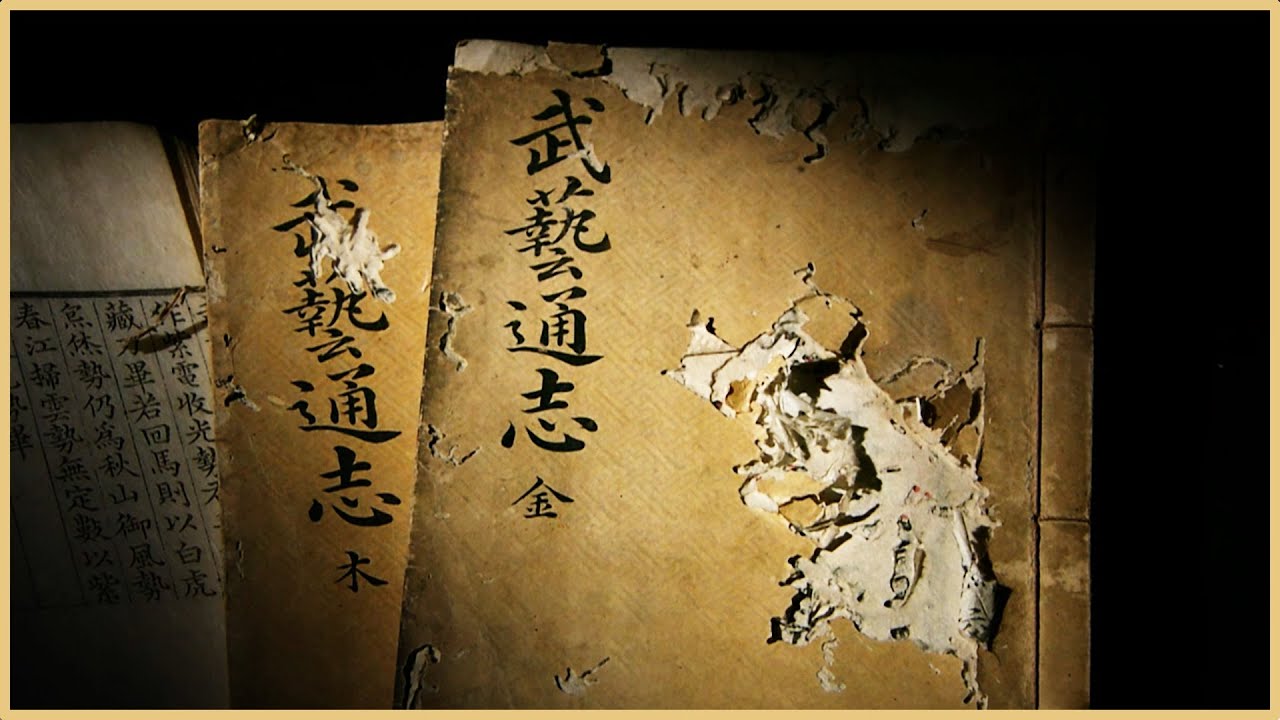 武藝通志
金
武藝通志
木
作紫電收光勢
藏刀畢若回馬則以白虎
炰烋勢仍爲秋山御風勢
春江掃雲勢無定數以紫
勢畢